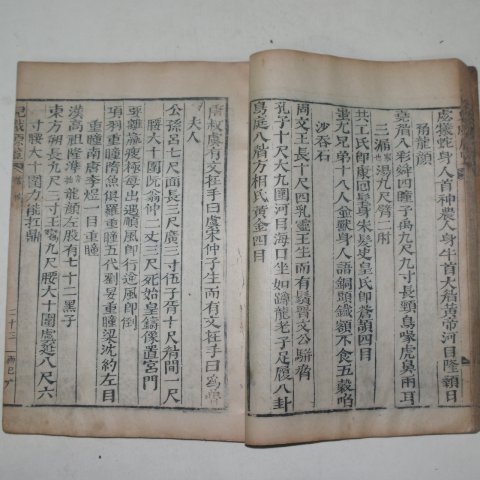 虙犧蛇身人首神農人身牛首大㬰黃帝河目隆顙日
角龍顏
堯眉八彩舜四瞳子禹九尺九寸長頸鳥喙虎鼻兩耳
三漏湯九尺臂二肘
共工氏卽康回髦身朱髮史皇氏卽蒼頡四目
蚩尤兄弟十八人竝獸身人語銅頭鐵額不食五穀啗
沙呑石
周文王長十尺四乳靈王生而有鬚晋文公騈脅
孔子十尺大九圍河目海口坐如蹲龍老子足履八卦
烏庭八眉方相氏黃金四目
唐叔虞有文在手曰虞宋仲子生而有文在手曰爲魯
夫人
公孫呂七尺面長三尺廣三寸伍子胥十尺眉間一尺
腰大十圍阮翁仲二丈三尺死始皇鑄像置宮門
亞雖瘦極母出遇順風卽行逆風卽倒
項羽重瞳隋魚俱羅重瞳五代劉旻重瞳梁沈約左目
重瞳南唐李煜一目重瞳
漢高祖隆準龍顏左股有七十二黑子
東方朔長九尺三寸王九尺腰大十圍虞延八尺六
寸腰大十圍力能扛鼎
二十三